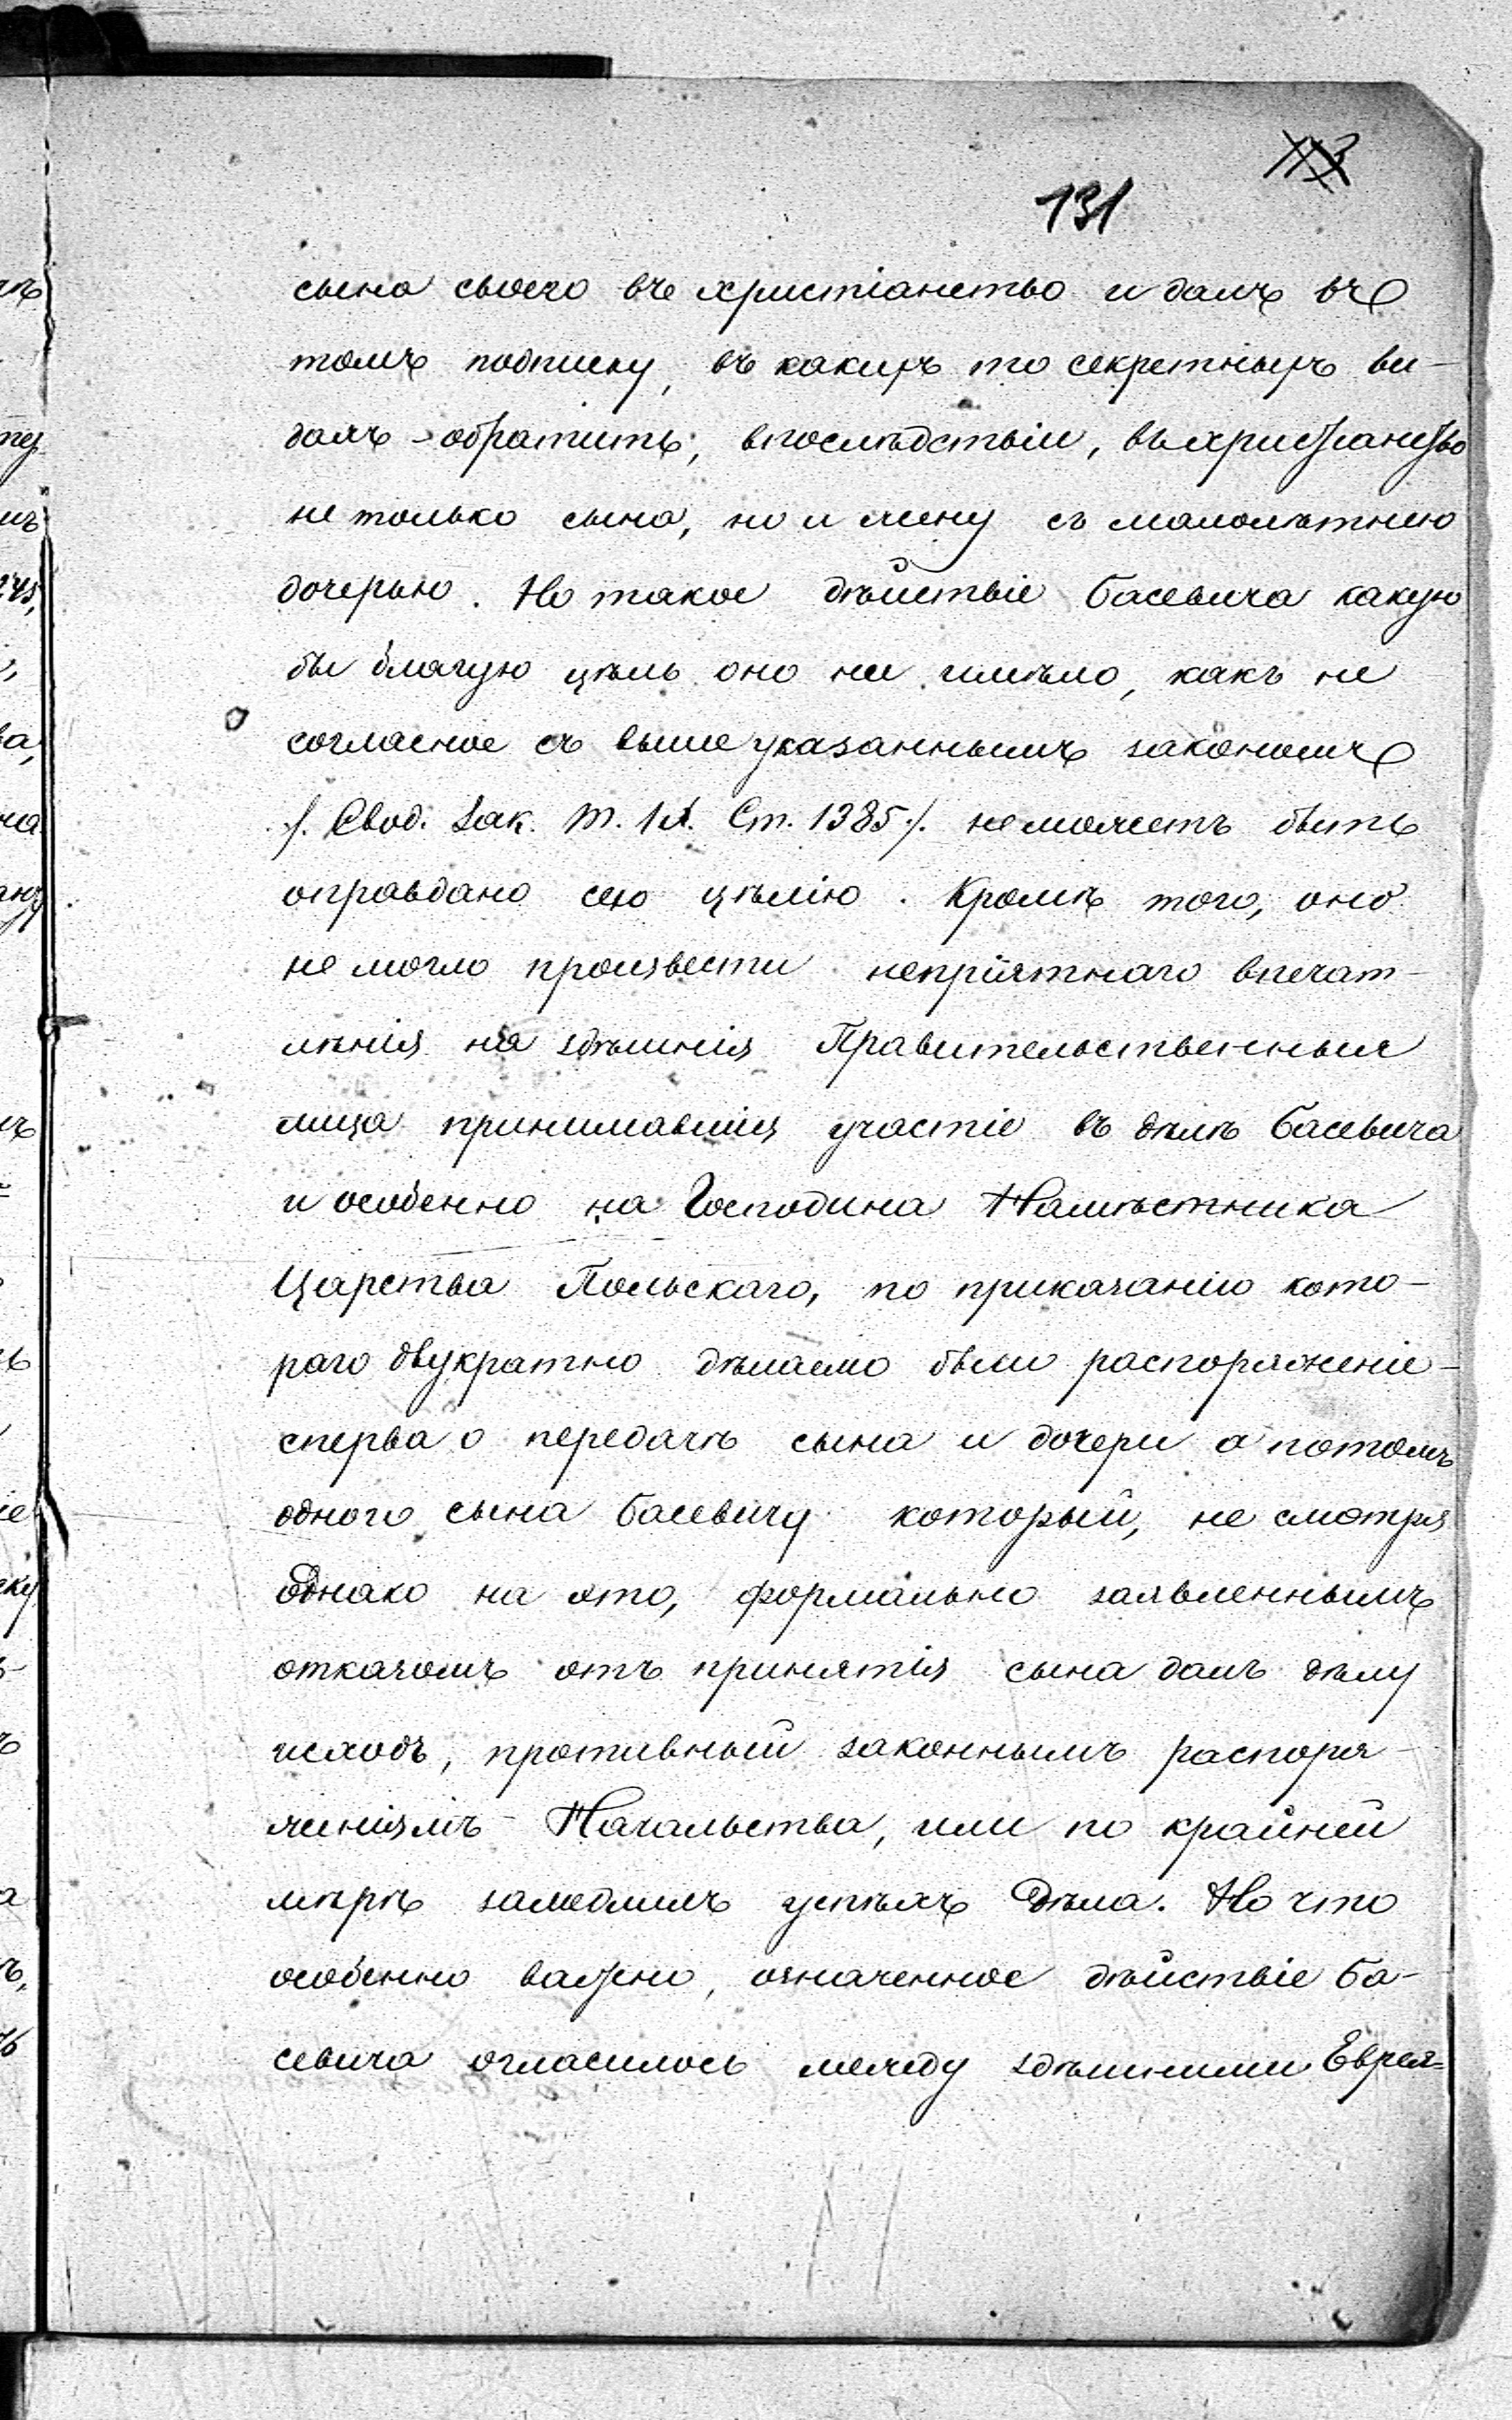 113
131
сына своего въ христіанство и далъ въ
томъ подписку, въ какихъ то секретныхъ ви-
дахъ - обратить, впослѣдствіи, въ христіанство
не только сына, но и жену съ малолѣтнею
дочерью. Но такое дѣйствіе Басевича какую
бы благую цѣль оно не имѣло, какъ не
согласное съ вышеуказаннымъ закономъ
/. Свод. Зак. Т. IX. Ст. 1385 /. не можетъ быть
оправдано сею цѣлію. Кромѣ того, оно
не могло произвести непріятнаго впечат-
лѣнія на здѣшнія Правительственныя
лица принимавшія участіе въ дѣлѣ Басевича
и особенно на Господина Намѣстника
Царства Польскаго, по приказанію кото-
раго двукратно дѣлаемо было распоряженіе -
сперва о передачѣ сына и дочери а потомъ
одного сына Басевичу который, не смотря
однако на это, формально заявленнымъ
отказомъ отъ принятія сына далъ дѣлу
исходъ, противный законнымъ распоря-
женіямъ Начальства, или по крайней
мѣрѣ замедлилъ успѣхъ дѣла. Но что
особенно важно, означенное дѣйствіе Ба-
севича огласилось между здѣшними Еврея-